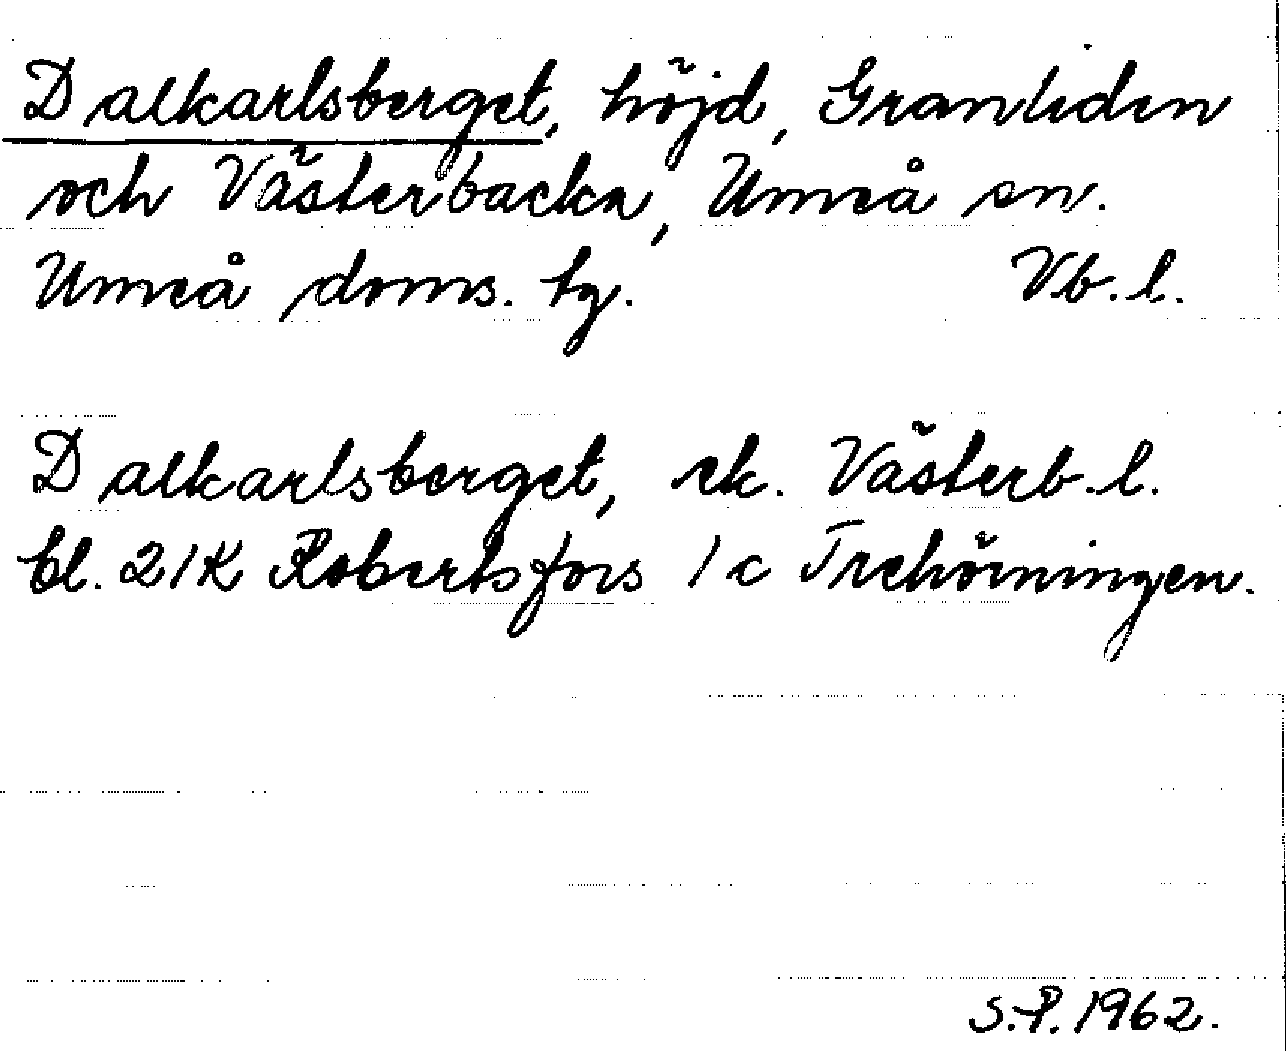 Dalkarlsberget, höjd, Granliden
och Västerbacka, Umeå sn.
Umeå doms. tg. Vb. l.
Dalkarlsberget, ek. Västerb. l.
bl. 21K Robertsfors 1 c Trehörningen.
S.P. 1962.